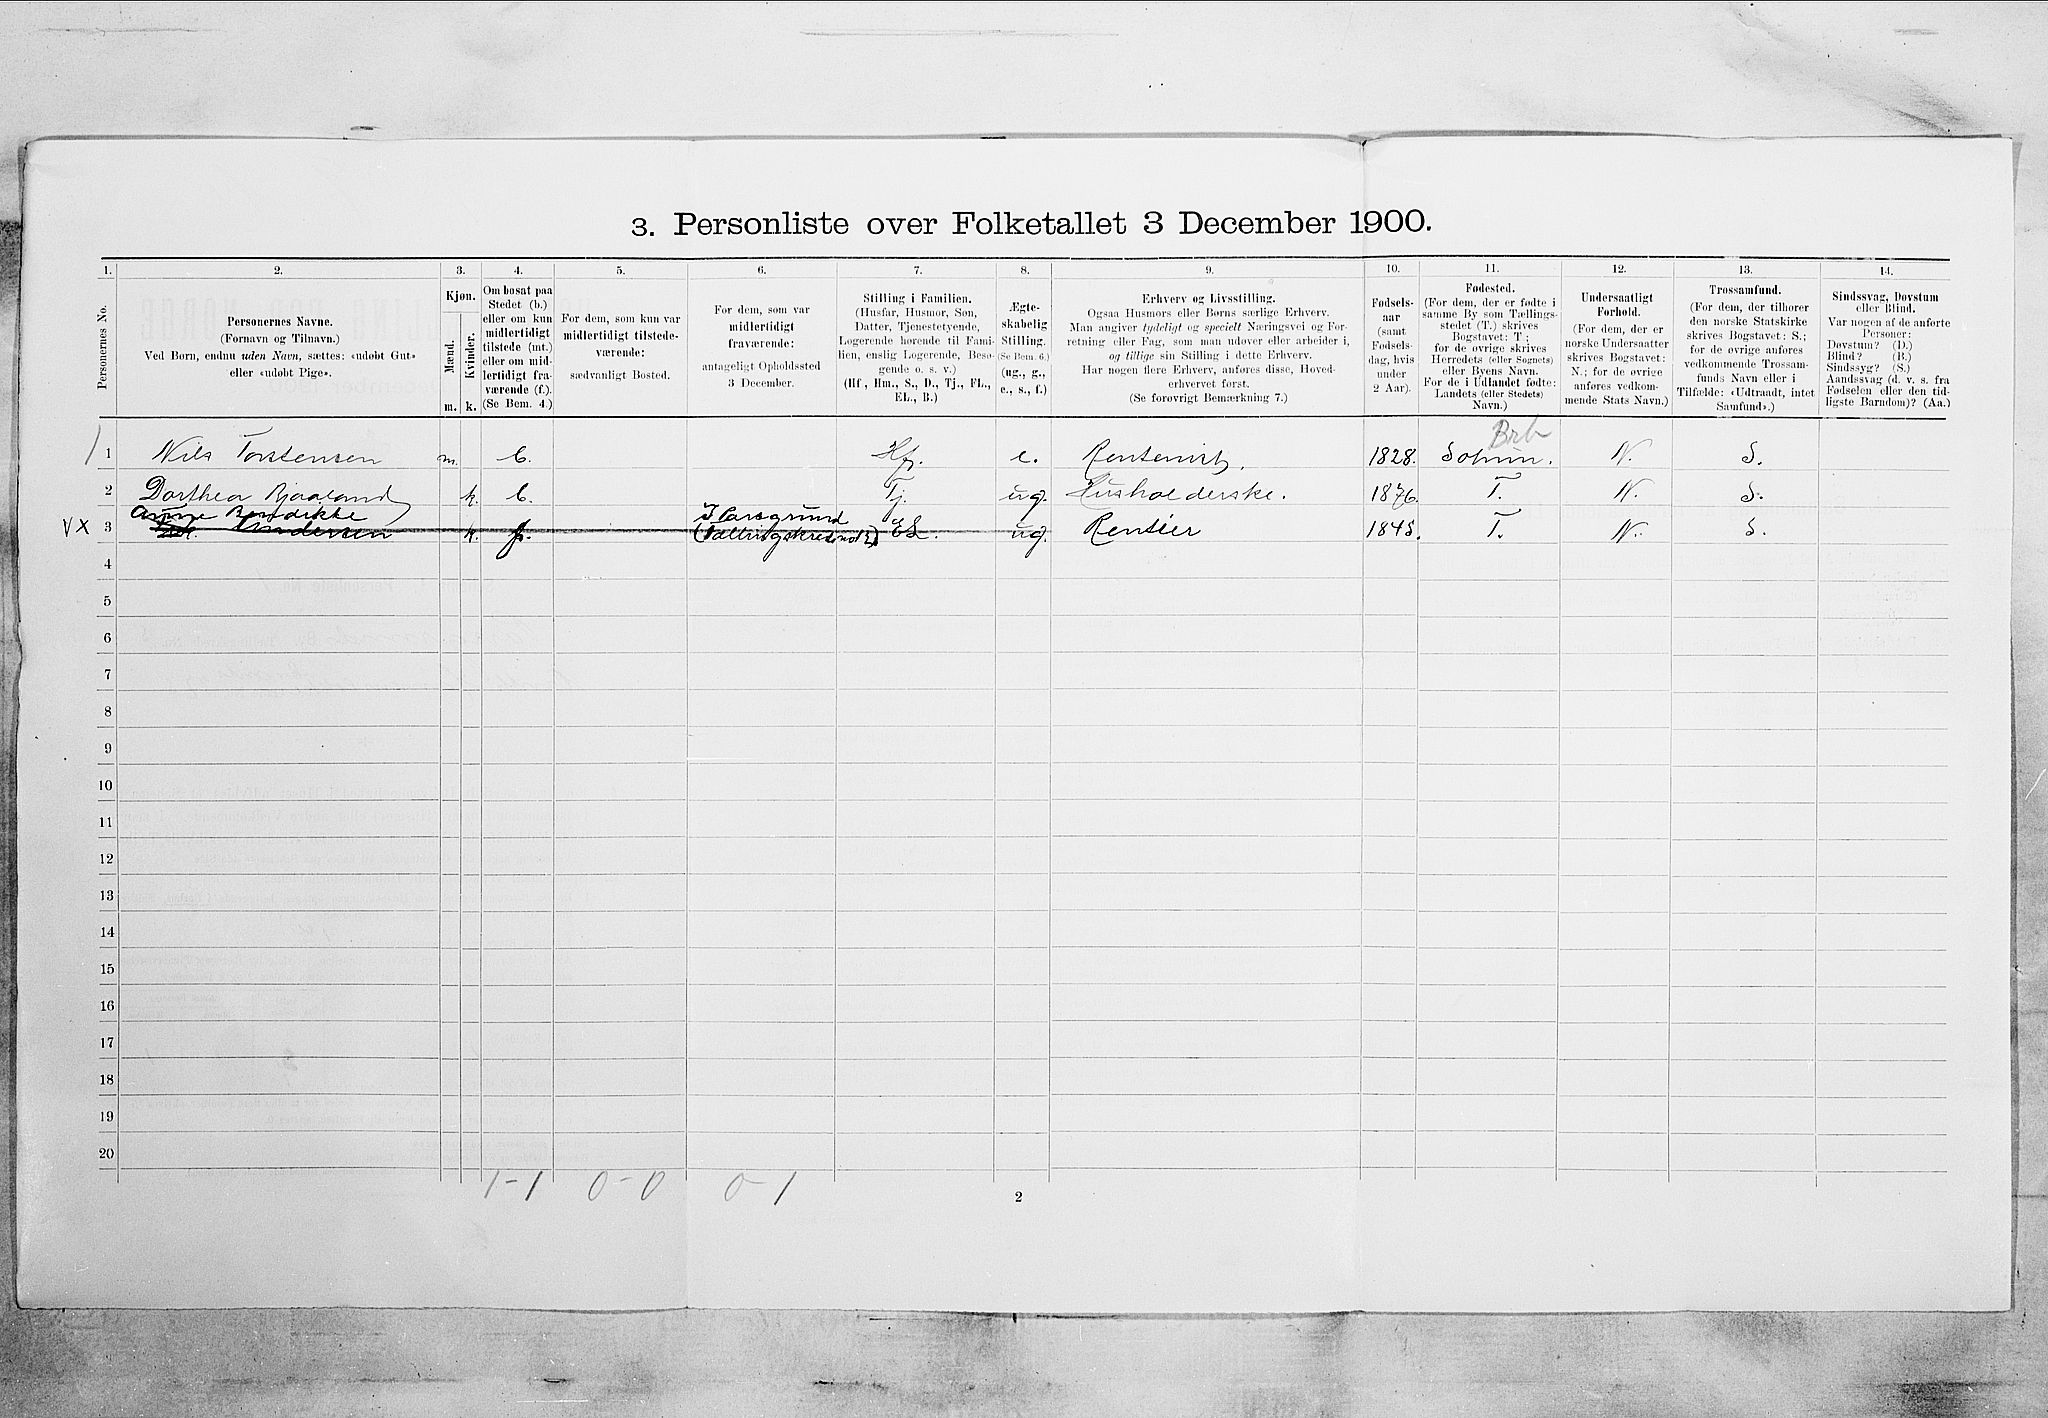 3. Personliste over Folketallet 3 December 1900.
1. 2. 3. 4. 5. 6. 7. 8. 9. 10. 11. 12. 13. 14.
Personernes No.
Personernes Navne.
(Fornavn og Tilnavn.)
Ved Børn, endnu uden Navn, sættes: «udøbt Gut»
eller «udøbt Pige».
Kjøn.
Mænd.
Kvinder.
m. k.
Om bosat paa
Stedet (b.)
eller om kun
midlertidigt
tilstede (mt.)
eller om mid-
lertidigt fra-
værende (f.).
(Se Bem. 4.)
For dem, som kun var
midlertidigt tilstede-
værende:
sædvanligt Bosted.
For dem, som var
midlertidigt
fraværende:
antageligt Opholdssted
3 December.
Stilling i Familien.
(Husfar, Husmor, Søn,
Datter, Tjenestetyende,
Logerende hørende til Fami-
lien, enslig Logerende, Besø-
gende o. s. v.)
(Hf., Hm., S., D., Tj., FL.,
EL., B.)
Ægte-
skabelig
Stilling.
(Se Bem. 6.)
(ug., g.,
e., s., f.)
Erhverv og Livsstilling.
Ogsaa Husmors eller Børns særlige Erhverv.
Man angiver tydeligt og specielt Næringsvei og For-
retning eller Fag, som man udøver eller arbeider i,
og tillige sin Stilling i dette Erhverv.
Har nogen flere Erhverv, anføres disse, Hoved-
erhvervet først.
(Se forøvrigt Bemærkning 7.)
Fødsels-
aar
(samt
Fødsels-
dag, hvis
under
2 Aar).
Fødested.
(For dem, der er fødte i
samme By som Tællings-
stedet (T.) skrives
Bogstavet: T.;
for de øvrige skrives
Herredets (eller Sognets)
eller Byens Navn.
For de i Udlandet fødte:
Landets (eller Stedets)
Navn.)
Undersaatligt
Forhold.
(For dem, der er
norske Undersaatter
skrives Bogstavet:
N.; for de øvrige
anføres vedkom-
mende Stats Navn.)
Trossamfund.
(For dem, der tilhører
den norske Statskirke
skrives Bogstavet: S.;
for de øvrige anføres
vedkommende Trossam-
funds Navn eller i
Tilfælde: «Udtraadt, intet
Samfund».)
Sindssvag, Døvstum
eller Blind.
Var nogen af de anførte
Personer:
Døvstum? (D.)
Blind? (B.)
Sindssyg? (S.)
Aandssvag (d. v. s. fra
Fødselen eller den tid-
ligste Barndom)? (Aa.)
Brb
1 Nils Torstensen m. b. Hf. e. Rentenist. 1828. N. S.
2 Dorthea Bjaaland k. b. Tj. ug. Husholderske. 1876. T. N. S.
Anne Bendikke I Porsgrund
VX 3 Andersen k. f. EL. ug. Rentier 1845. T. N. S.
4
5
6
7
8
9
10
11
12
13
14
15
16
17
18
19
20
1-1 0-0 0-1
2